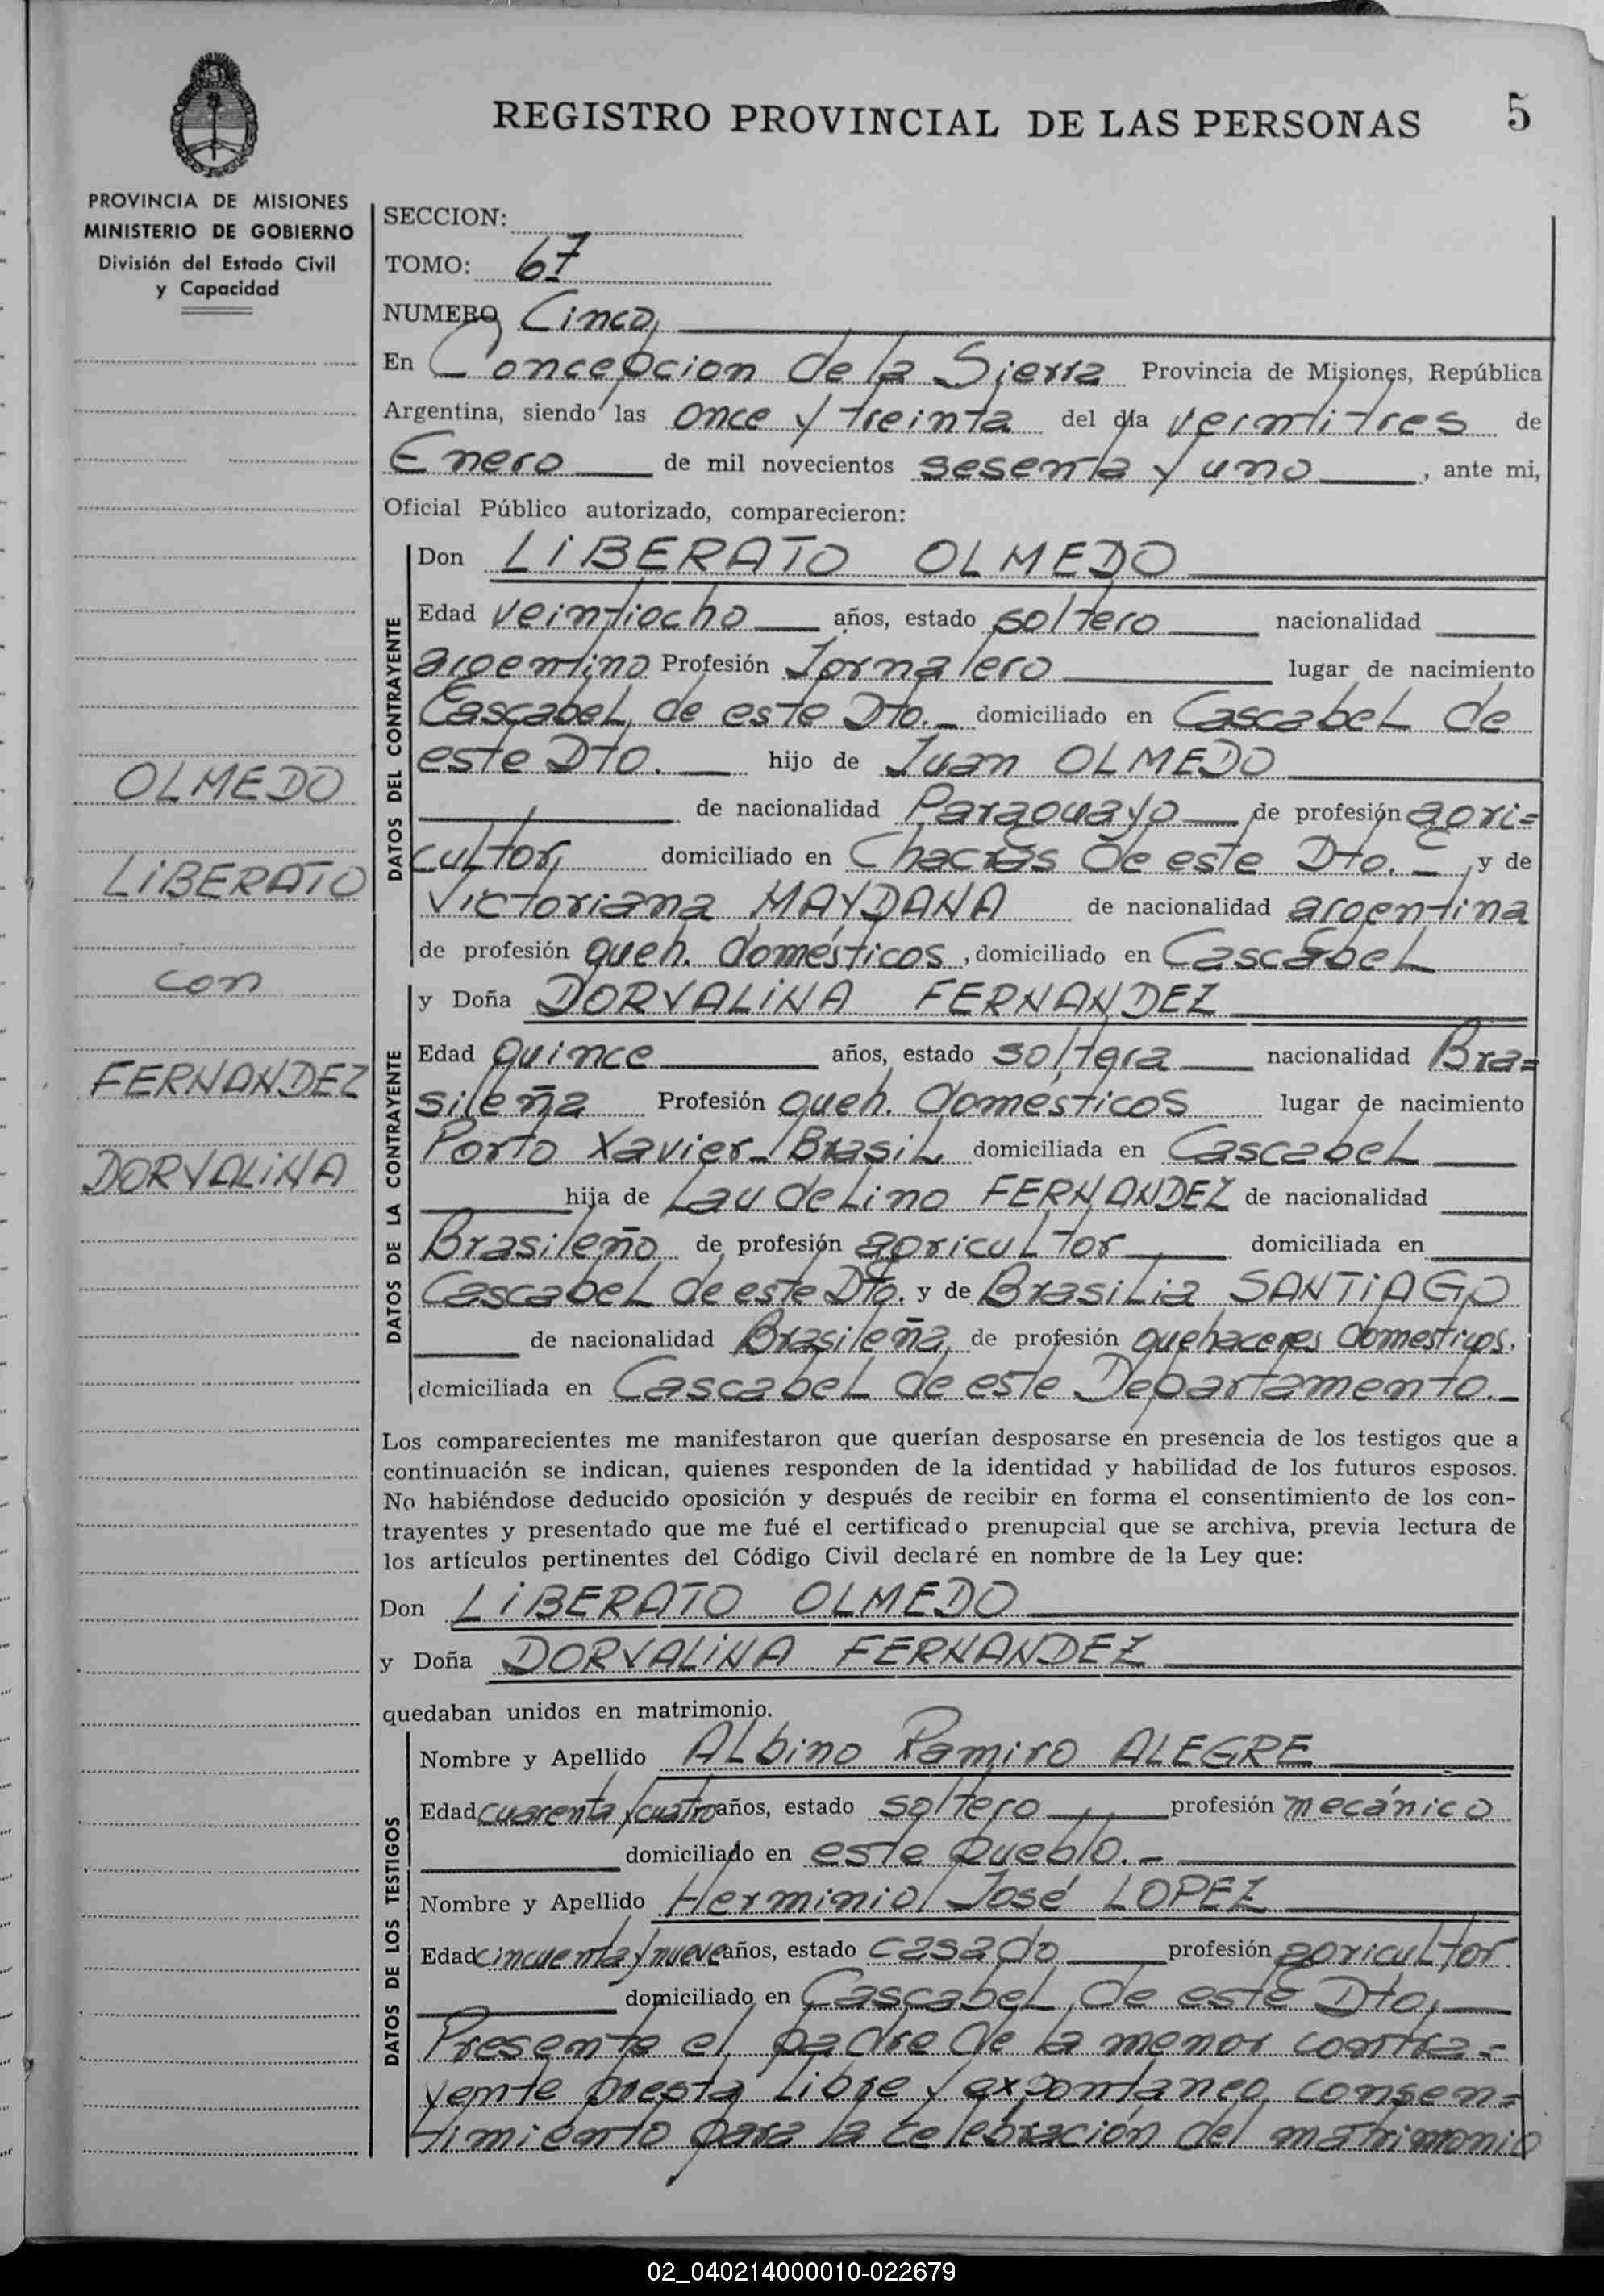 REGISTRO PROVINCIAL DE LAS PERSONAS 5
PROVINCIA DE MISIONES
MINISTERIO DE GOBIERNO
División del Estado Civil
y Capacidad
OLMEDO
LIBERATO
con
FERNANDEZ
DORVALINA
SECCION:
TOMO: 67
NUMERO Cinco,
En Concepcion de la Sierra Provincia de Misiones, República
Argentina, siendo las once y treinta del día veintitres de
Enero de mil novecientos sesenta y uno, ante mi,
Oficial Público autorizado, comparecieron:
DATOS DEL CONTRAYENTE
Don LIBERATO OLMEDO
Edad veintiocho años, estado soltero nacionalidad
argentino Profesión Jornalero lugar de nacimiento
Cascabel, de este Dto. domiciliado en Cascabel de
este Dto. hijo de Juan OLMEDO
de nacionalidad Paraguayo de profesión agri=
cultor, domiciliado en Chacras de este Dto. y de
Victoriana MAYDANA de nacionalidad argentina
de profesión queh. domésticos, domiciliado en Cascabel
DATOS DE LA CONTRAYENTE
y Doña DORVALINA FERNANDEZ
Edad quince años, estado soltera nacionalidad Bra=
sileña Profesión queh. domesticos lugar de nacimiento
Porto Xavier-Brasil domiciliada en Cascabel
hija de Laudelino FERNANDEZ de nacionalidad
Brasileño de profesión agricultor domiciliada en
Cascabel de este Dto. y de Brasilia SANTIAGO
de nacionalidad Brasileña, de profesión quehaceres domesticos.
domiciliada en Cascabel de este Departamento.-
Los comparecientes me manifestaron que querían desposarse en presencia de los testigos que a
continuación se indican, quienes responden de la identidad y habilidad de los futuros esposos.
No habiéndose deducido oposición y después de recibir en forma el consentimiento de los con-
trayentes y presentado que me fué el certificado prenupcial que se archiva, previa lectura de
los artículos pertinentes del Código Civil declaré en nombre de la Ley que:
Don LIBERATO OLMEDO
y Doña DORVALINA FERNANDEZ
quedaban unidos en matrimonio.
DATOS DE LOS TESTIGOS
Nombre y Apellido Albino Ramiro ALEGRE
Edad cuarenta y cuatro años, estado soltero profesión mecánico
domiciliado en este Pueblo.-
Nombre y Apellido Herminio José LOPEZ
Edad cincuenta y nueve años, estado casado profesión agricultor.
domiciliado en Cascabel, de este Dto,
Presente el padre de la menor contra=
yente presta libre y expontáneo consen=
timiento para la celebración del matrimonio
02_040214000010-022679